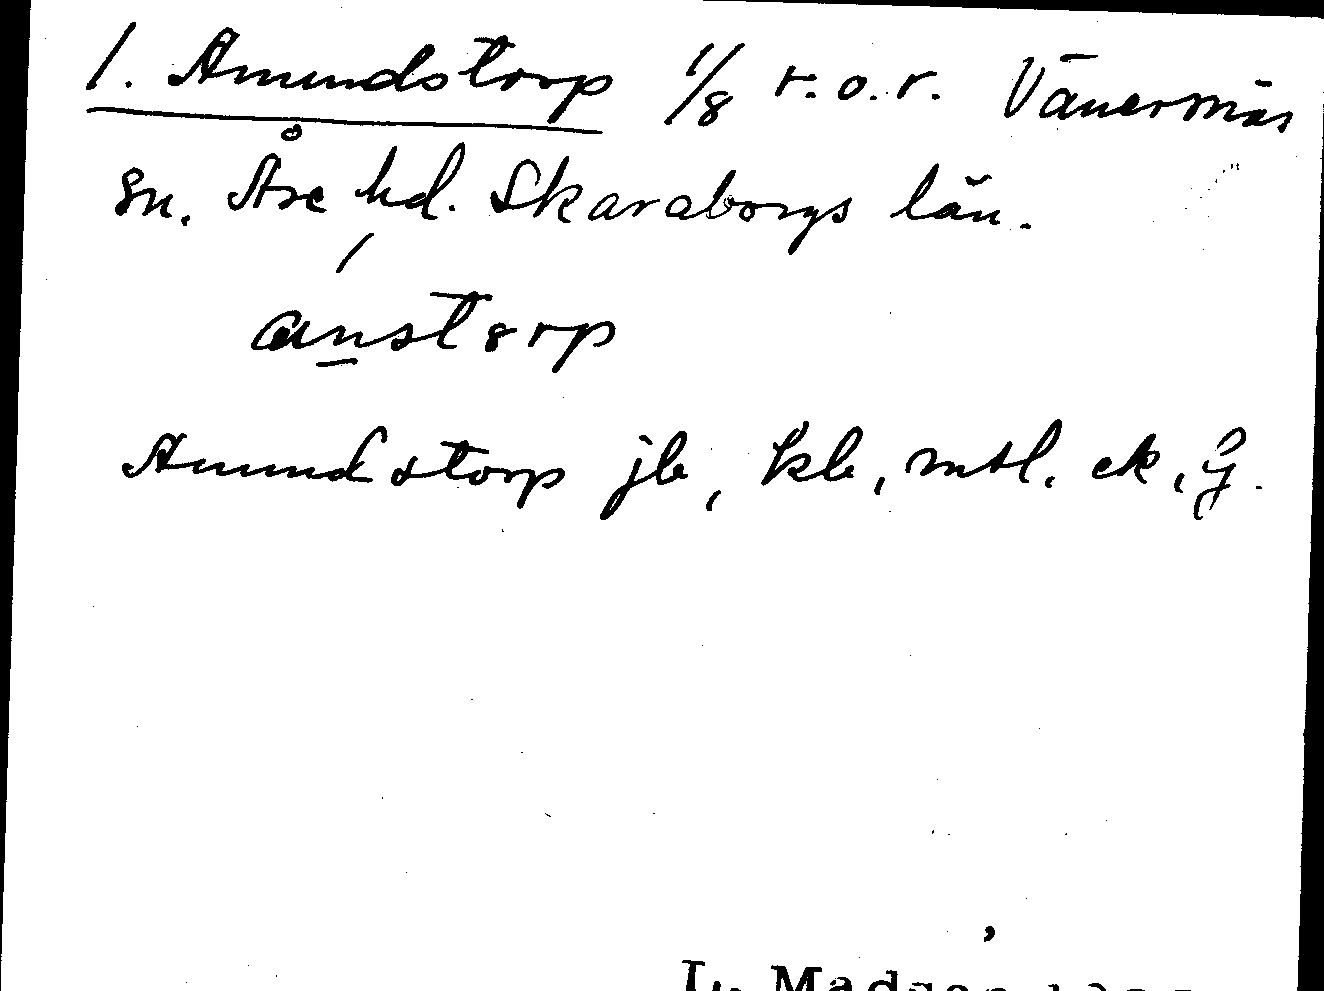 1. Amundstorp 1/8 r.o.r. Vänernäs
sn. Åse hd. Skaraborgs län.
Amundstorp jb, kb, mtl. ek, g.
L. Madsen